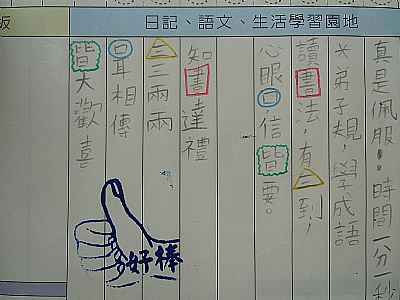 版
日記、語文、生活學習園地
真是佩服!時間一分一秒
父弟子規,學成語
讀書法,有三到,
心眼口,信皆要。
知書達禮
三三兩兩
口耳相傳
皆大歡喜
好棒